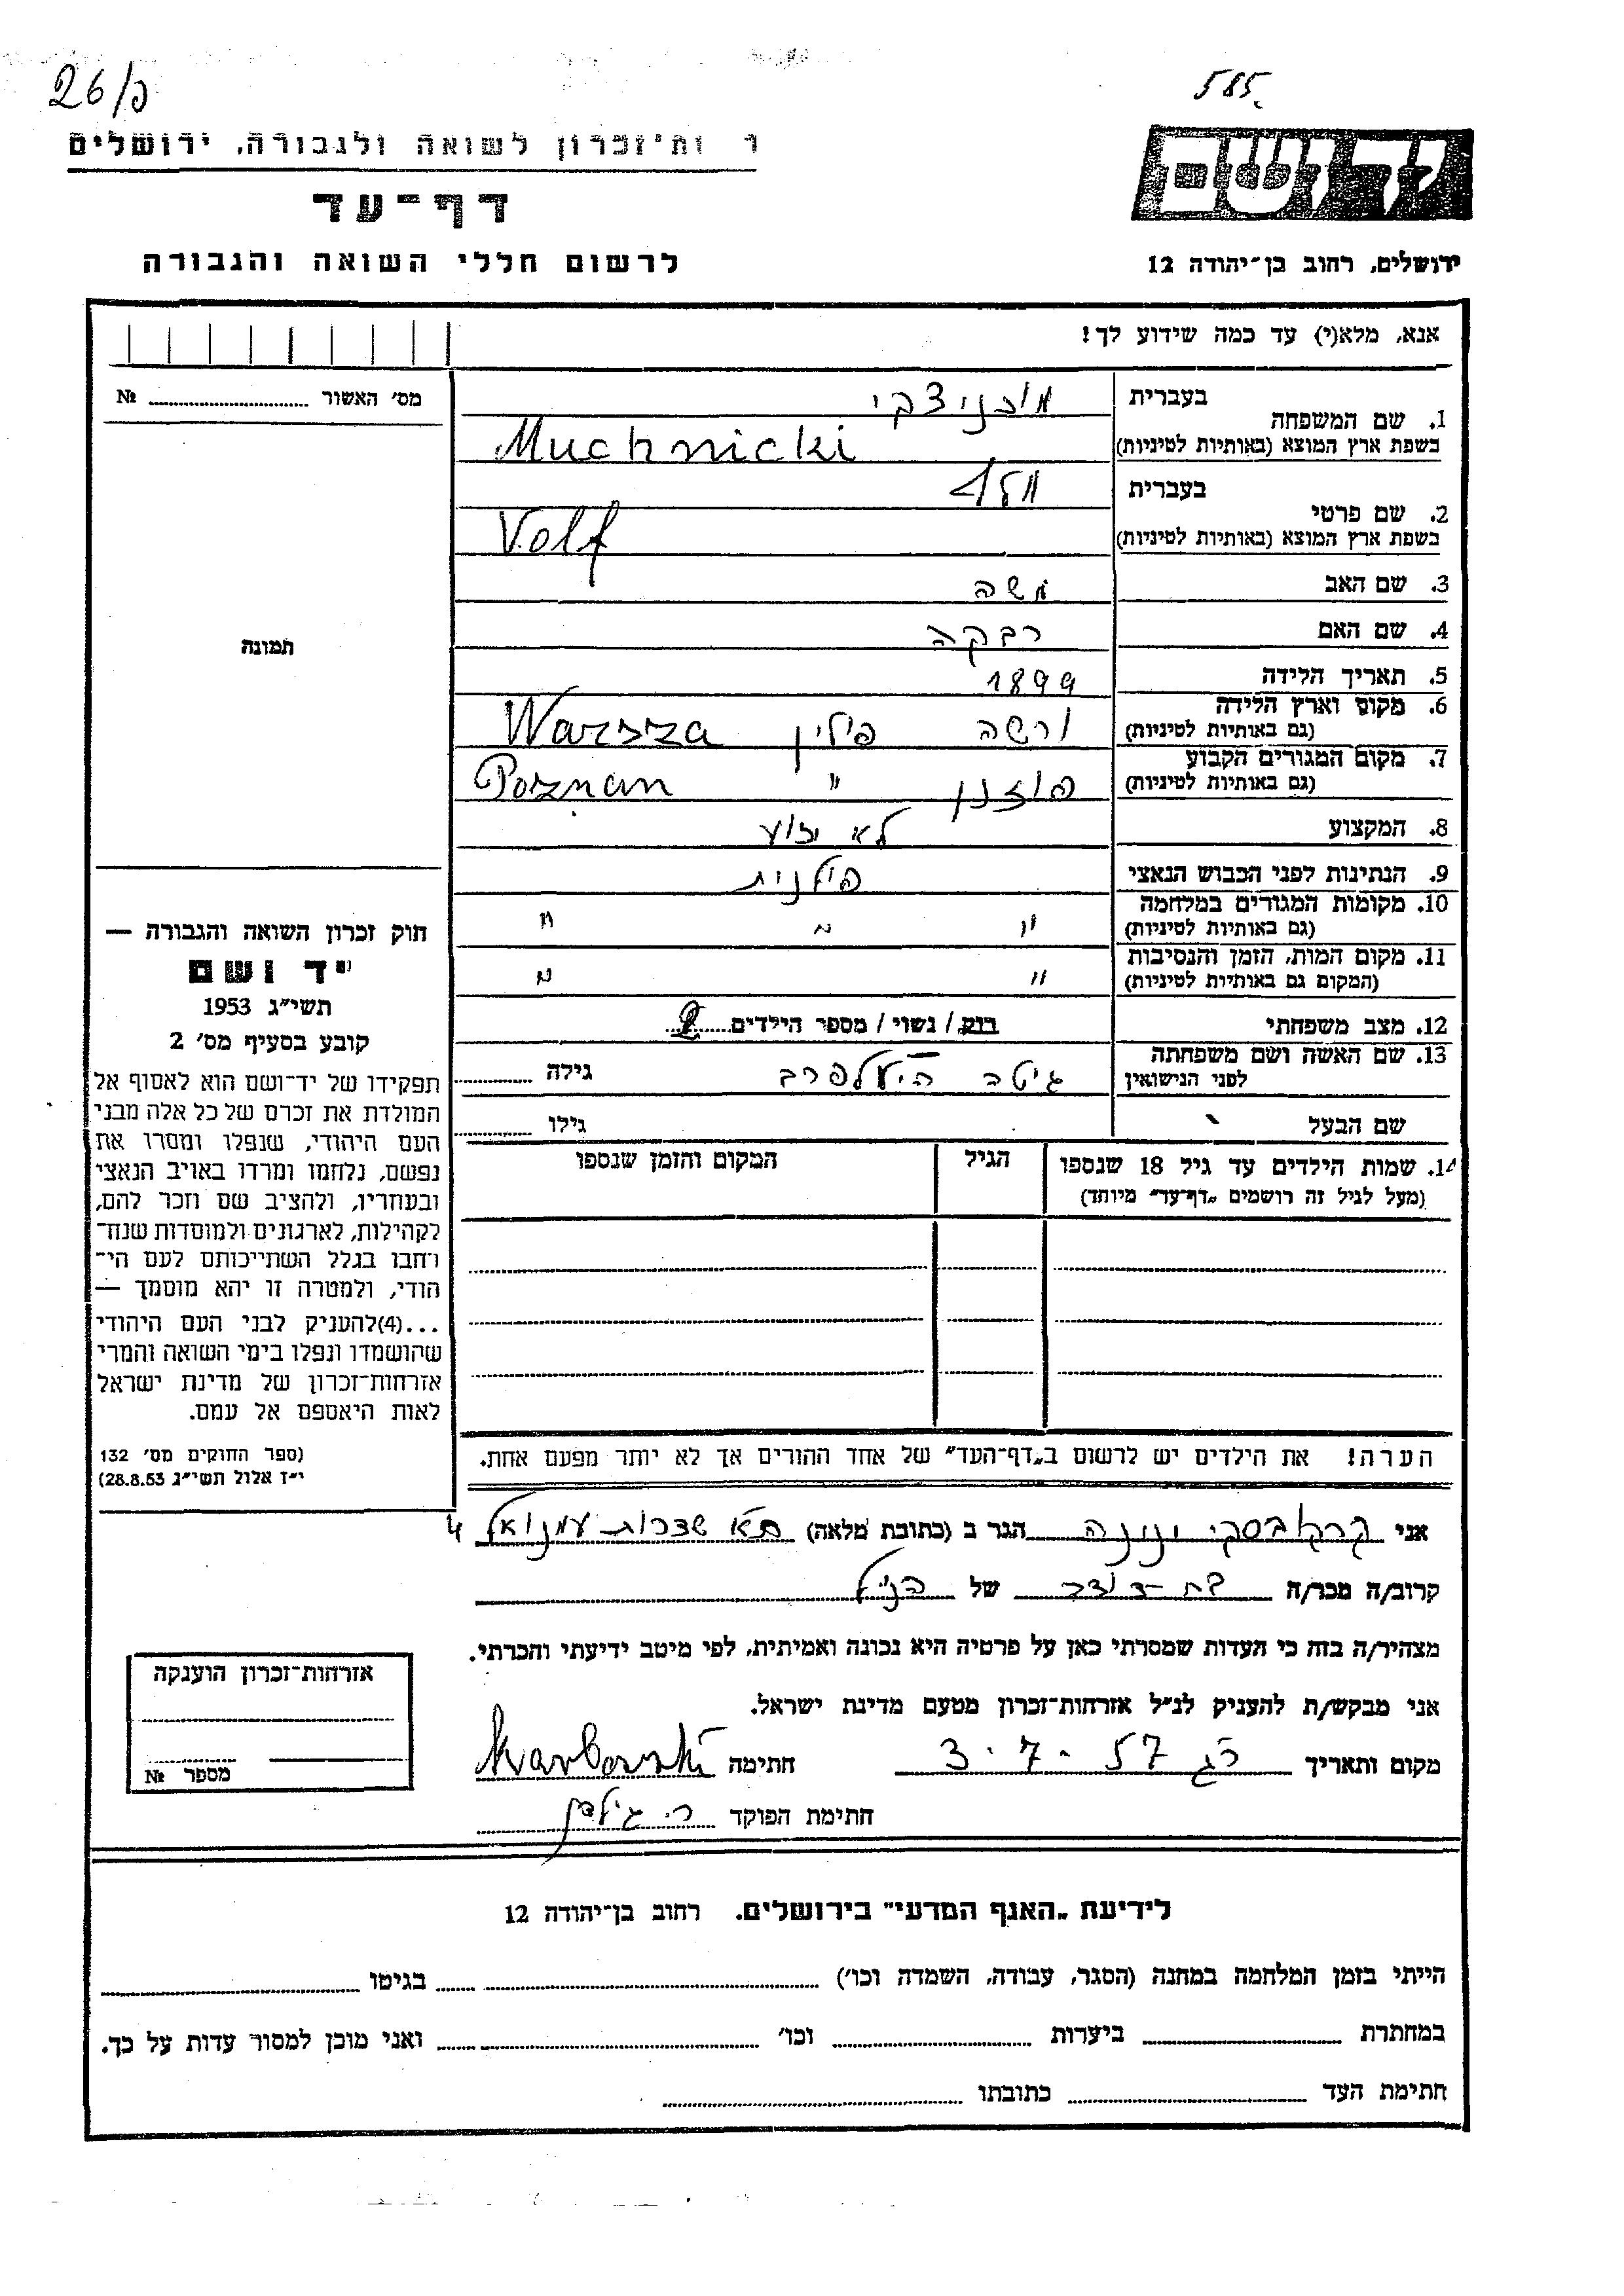 26/כ
585.
ר ות־זכרון לשואה ולגבורה, ירושלים
דף־עד
לרשום חללי השואה והגבורה
יד ושם
ירושלים, רחוב בן־יהודה 12
אנא, מלא(י) עד כמה שידוע לך!
מס׳ האשור № 
תמונה
1. שם המשפחה
בעברית מוכניצקי
בשפת ארץ המוצא (באותיות לטיניות) Muchnicki
2. שם פרטי
בעברית וולף
בשפת ארץ המוצא (באותיות לטיניות) Volf
3. שם האב משה
4. שם האם רבקה
5. תאריך הלידה 1899
6. מקום וארץ הלידה ורשה פולין Warsza
(גם באותיות לטיניות)
7. מקום המגורים הקבוע פוזנן " Poznan
(גם באותיות לטיניות)
8. המקצוע לא ידוע
9. הנתינות לפני הכבוש הנאצי פולנית
10. מקומות המגורים במלחמה " " "
(גם באותיות לטיניות)
11. מקום המות, הזמן והנסיבות " "
(המקום גם באותיות לטיניות)
12. מצב משפחתי רוק / נשוי / מספר הילדים 2
13. שם האשה ושם משפחתה גיטה גילה
לפני הנישואין
שם הבעל גילו
14. שמות הילדים עד גיל 18 שנספו הגיל המקום והזמן שנספו
(מעל לגיל זה רושמים „דף־עד״ מיוחד)
הערה! את הילדים יש לרשום ב„דף־העד״ של אחד ההורים אך לא יותר מפעם אחת.
חוק זכרון השואה והגבורה —
יד ושם
תשי״ג 1953
קובע בסעיף מס׳ 2
תפקידו של יד־ושם הוא לאסוף אל
המולדת את זכרם של כל אלה מבני
העם היהודי, שנפלו ומסרו את
נפשם, נלחמו ומרדו באויב הנאצי
ובעוזריו, ולהציב שם וזכר להם,
לקהילות, לארגונים ולמוסדות שנח־
רחבו בגלל השתייכותם לעם הי־
הודי, ולמטרה זו יהא מוסמך —
...(4)להעניק לבני העם היהודי
שהושמדו ונפלו בימי השואה והמרי
אזרחות־זכרון של מדינת ישראל
לאות היאספם אל עמם.
(ספר החוקים מס׳ 132
י״ז אלול תשי״ג 28.8.53)
אני קרקובסקי הגר ב (כתובת מלאה) ת״א שדרות עמנואל 4
קרוב/ה מכר/ה בת-דודה של הנ״ל
מצהיר/ה בזה כי העדות שמסרתי כאן על פרטיה היא נכונה ואמיתית, לפי מיטב ידיעתי והכרתי.
אני מבקש/ת להעניק לנ״ל אזרחות־זכרון מטעם מדינת ישראל.
מקום ותאריך רג 3.7.57 חתימה
חתימת הפוקד
אזרחות־זכרון הוענקה
מספר №
לידיעת „האגף המדעי״ בירושלים. רחוב בן־יהודה 12
הייתי בזמן המלחמה במחנה (הסגר, עבודה, השמדה וכו׳) בגיטו
במחתרת ביערות וכו׳ ואני מוכן למסור עדות על כך.
חתימת העד כתובתו